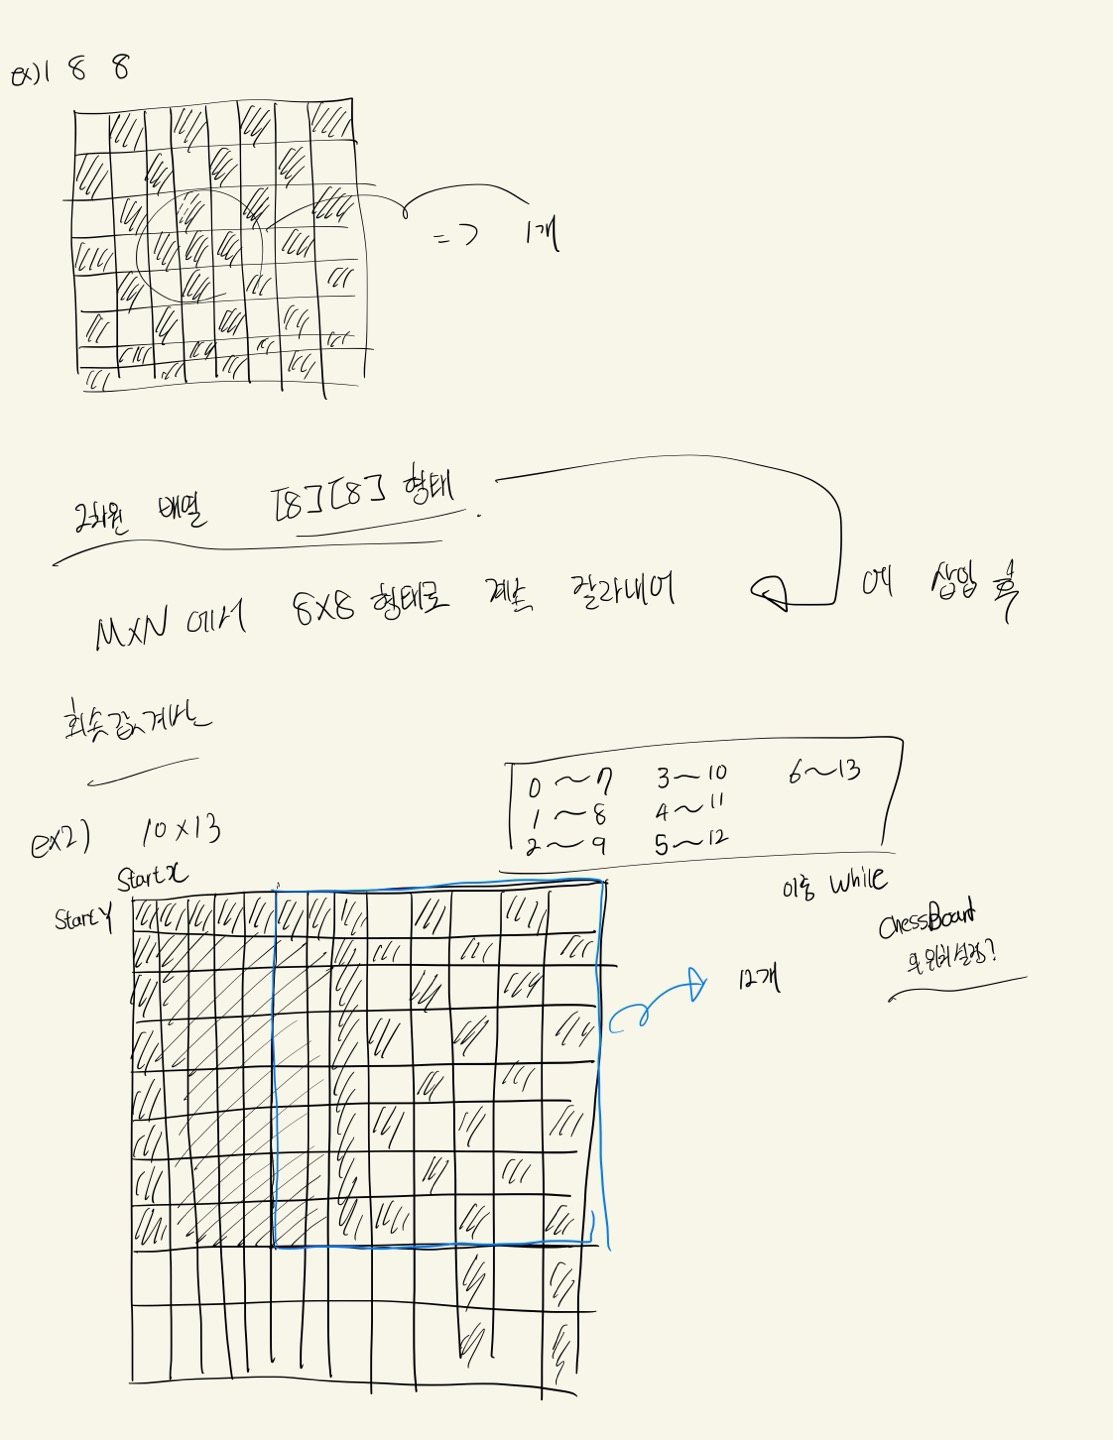 ex)1 8 8
=> 1개
2차원 배열 [8][8] 형태
MxN 에서 8x8 형태로 계속 잘라내어 에 삽입 후
최솟값 계산
0~7 3~10 6~13
1~8 4~11
2~9 5~12
ex2) 10x13
이중 While
StartX
StartY
ChessBoard
12개